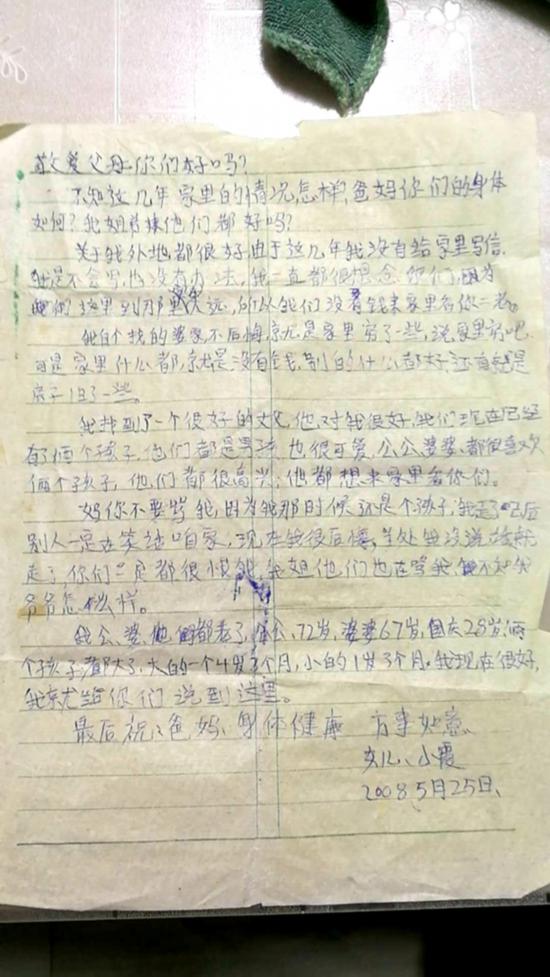 敬爱父母你们好吗?
不知这几年家里的情况怎样,爸妈你们的身体
如何?我姐 他们都好吗?
关于我外地都很好,由于这几年我没有给家里写信.
我是不会写,也没有办法,我一直都很想念你们,因为
这里到那里太远,所以我们没有钱来家里看你二老。
我自个找的婆家,不后悔,就是家里穷了一些,说家里穷吧
可是家里什么都,就是没有钱,别的什么都好,还有就是
房子旧了一些。
我找到了一个很好的丈夫,他对我很好,我们现在已经
有俩个孩子,他们都是男孩,也很可爱,公公婆婆,都很喜欢
俩个孩子,他们都很高兴,他都想来家里看你们。
妈你不要骂我,因为我那时候还是个孩子,我走了已后
别人一定在笑话咱家,现在我很后悔,当处我没说
走了,你们一定都很恨我,我姐他们也在骂我,
爷爷怎么样。
我公、婆他俩都老了,公公、72岁,婆婆67岁,国庆28岁,俩
个孩子都大了,大的一个4岁3个月,小的1岁3个月。我现在很好,
我就给你们说到这里。
最后祝:爸,妈,身体健康 万事如意、
女儿、小霞
2008 5月25日、